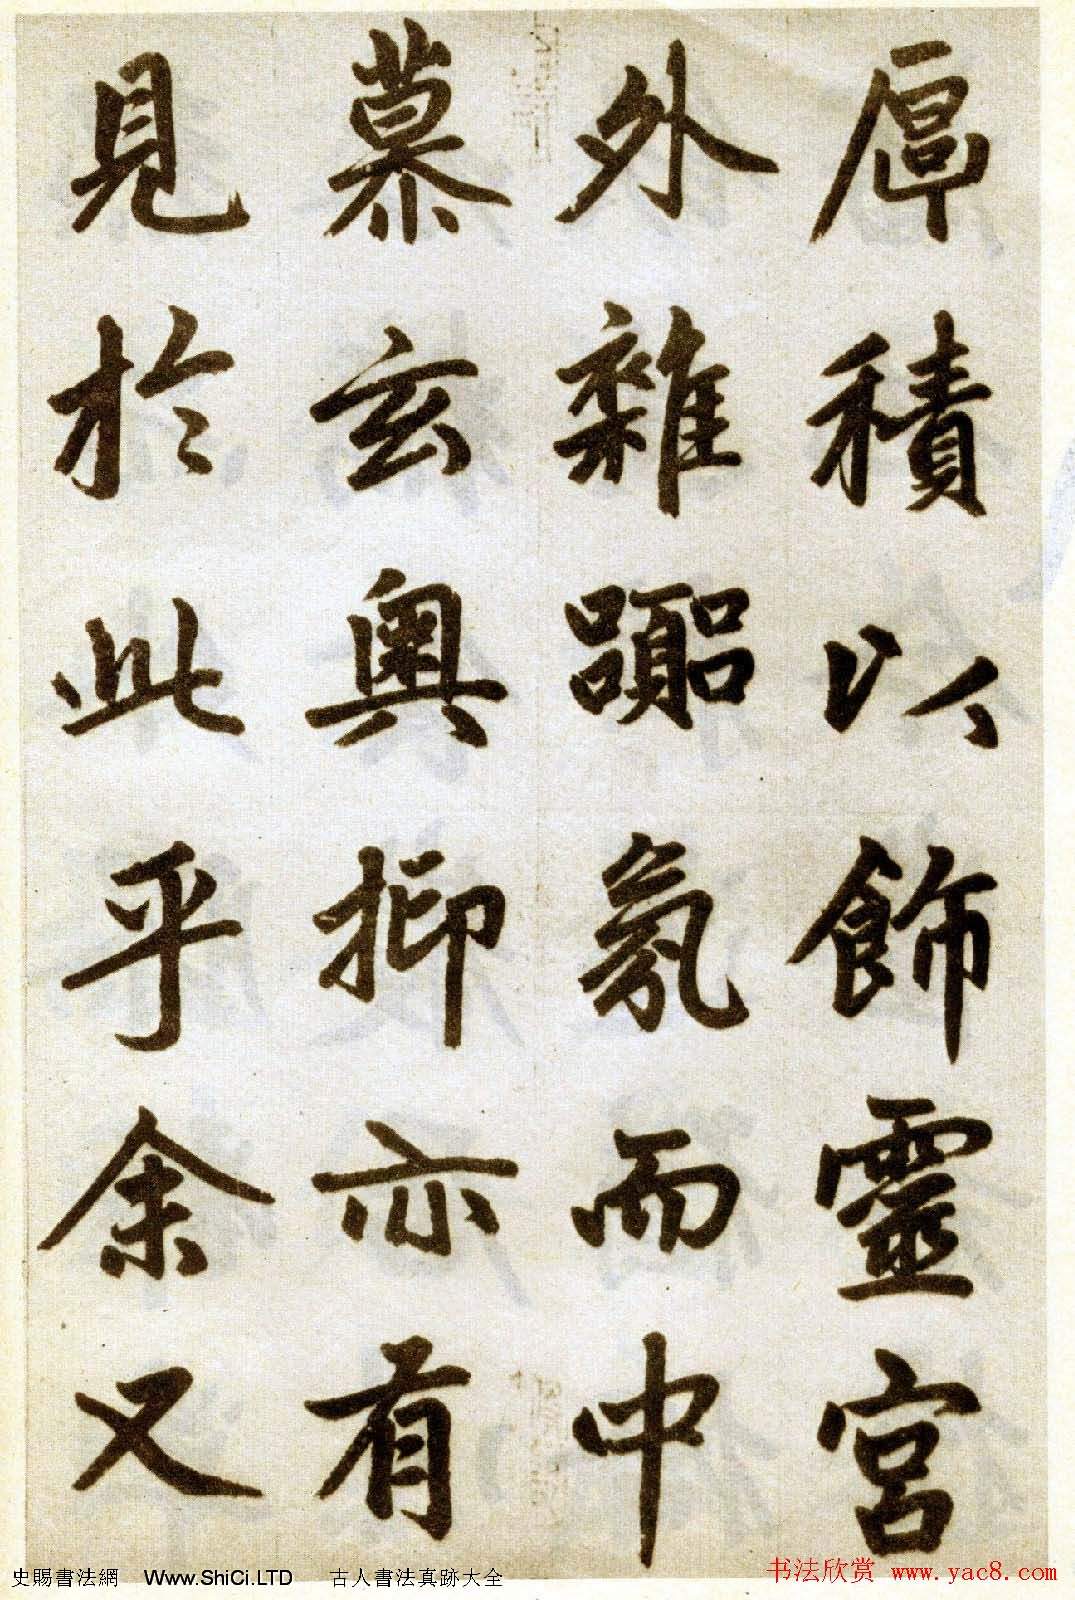 厚積以飾靈宮
外雜囂氛而中
慕玄奧抑亦有
見於此乎余又
史賜書法網 Www.ShiCi.LTD 古人書法真跡大全
书法欣赏 www.yac8.com